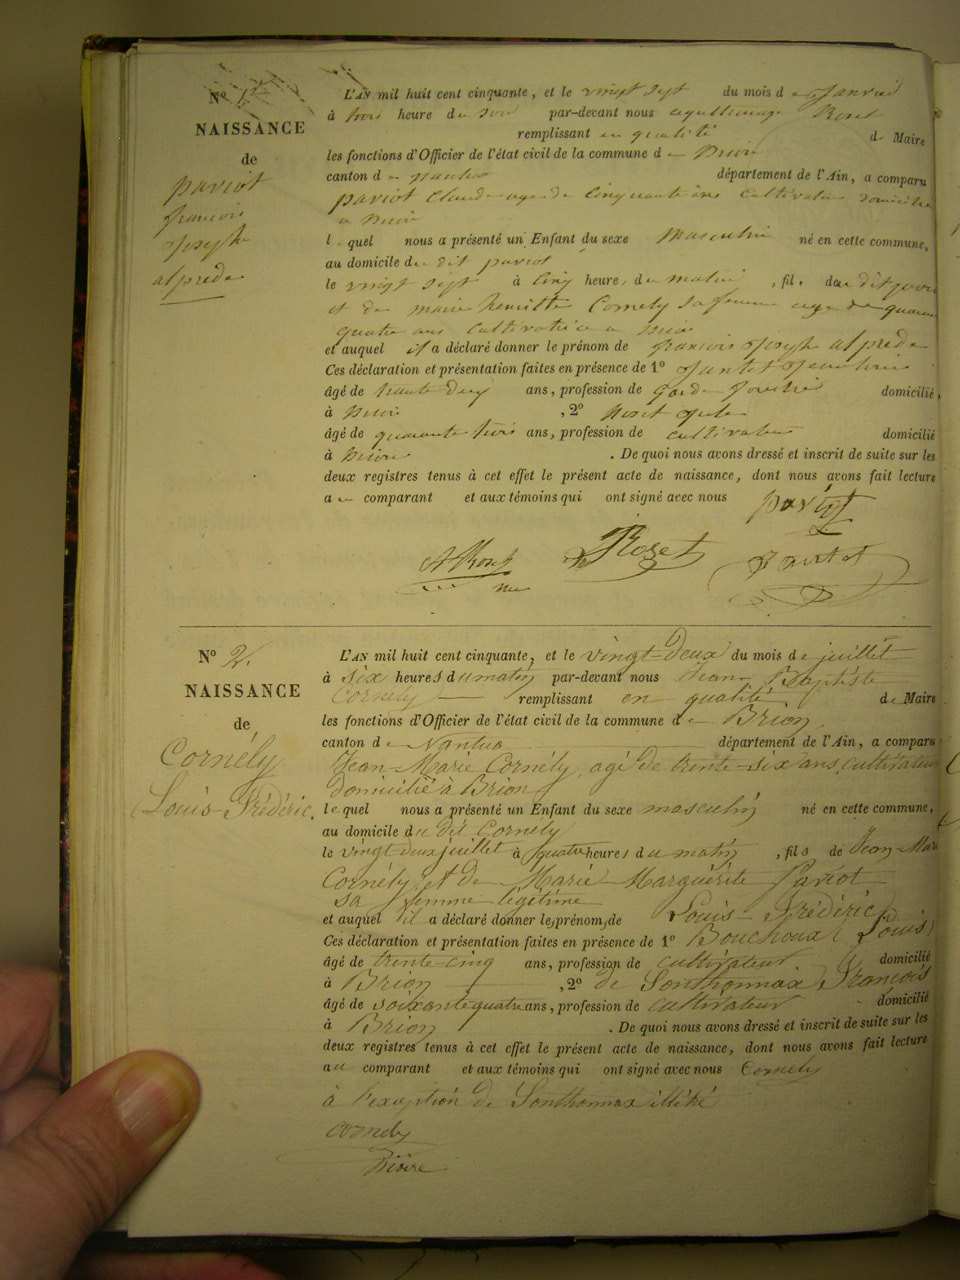 N° 1er
NAISSANCE
de
paviot
francois
joseph
alprede
L'AN mil huit cent cinquante, et le vingt sept du mois de Janvier
à trois heure du soir par-devant nous Roset
remplissant en qualité de Maire
les fonctions d'Officier de l'état civil de la commune de
canton de nantua département de l'Ain, a comparu
paviot Claude age de Cinquante ans cultivateur domicilie
a
le quel nous a présenté un Enfant du sexe Masculin né en cette commune,
au domicile du dit paviot
le vingt sept à Cinq heure, du matin, fil, du dit
et de marie Cornely sa femme age de quarante
quatre ans cultivatrice a
et auquel il a déclaré donner le prénom de francois joseph alprede
Ces déclaration et présentation faites en présence de 1°
âgé de ans, profession de garde domicilié,
à , 2° Roset
âgé de quarante trois ans, profession de cultivateur domicilié
à . De quoi nous avons dressé et inscrit de suite sur les
deux registres tenus à cet effet le présent acte de naissance, dont nous avons fait lecture
a comparant et aux témoins qui ont signé avec nous paviot
A Roset Roset
N° 2.
NAISSANCE
de
Cornély
Louis-Frédéric.
L'AN mil huit cent cinquante, et le vingt-deux du mois de juillet
à six heures du matin par-devant nous Jean-Baptiste
Cornély remplissant en qualité de Maire
les fonctions d'Officier de l'état civil de la commune de Brion,
canton de Nantua département de l'Ain, a comparu
Jean-Marie Cornély, agé de trente-six ans, cultivateur
domicilié à Brion
le quel nous a présenté un Enfant du sexe masculin né en cette commune,
au domicile du dit Cornély
le vingt deux juillet à quatre heures du matin, fils de Jean Marie
Cornély et de Marie Marguérite Paviot
sa femme légitime
et auquel il a déclaré donner le prénom de Louis-Frédéric
Ces déclaration et présentation faites en présence de 1° Bouchoux (Louis)
âgé de trente-cinq ans, profession de cultivateur domicilié
à Brion , 2° de Sonthonnax François
âgé de soixante quatre ans, profession de cultivateur domicilié
à Brion . De quoi nous avons dressé et inscrit de suite sur les
deux registres tenus à cet effet le présent acte de naissance, dont nous avons fait lecture
au comparant et aux témoins qui ont signé avec nous Cornely
à l'exception de Sonthonnax illétré
Cornely